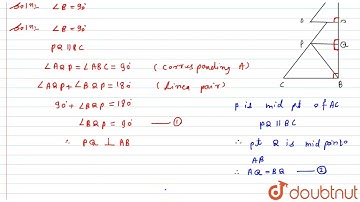 Soln: ∠B = 90°
Soln: ∠B = 90°
PQ || BC
∠AQP = ∠ABC = 90° (corresponding A)
∠AQP + ∠BQP = 180° (linea pair)
90° + ∠BQP = 180°
∠BQP = 90° — ①
∴ PQ ⊥ AB
P
Q
C
B
P is mid pt of AC
PQ || BC
∴ pt Q is mid point
AB
∴ AQ = BQ — ②
doubtnut